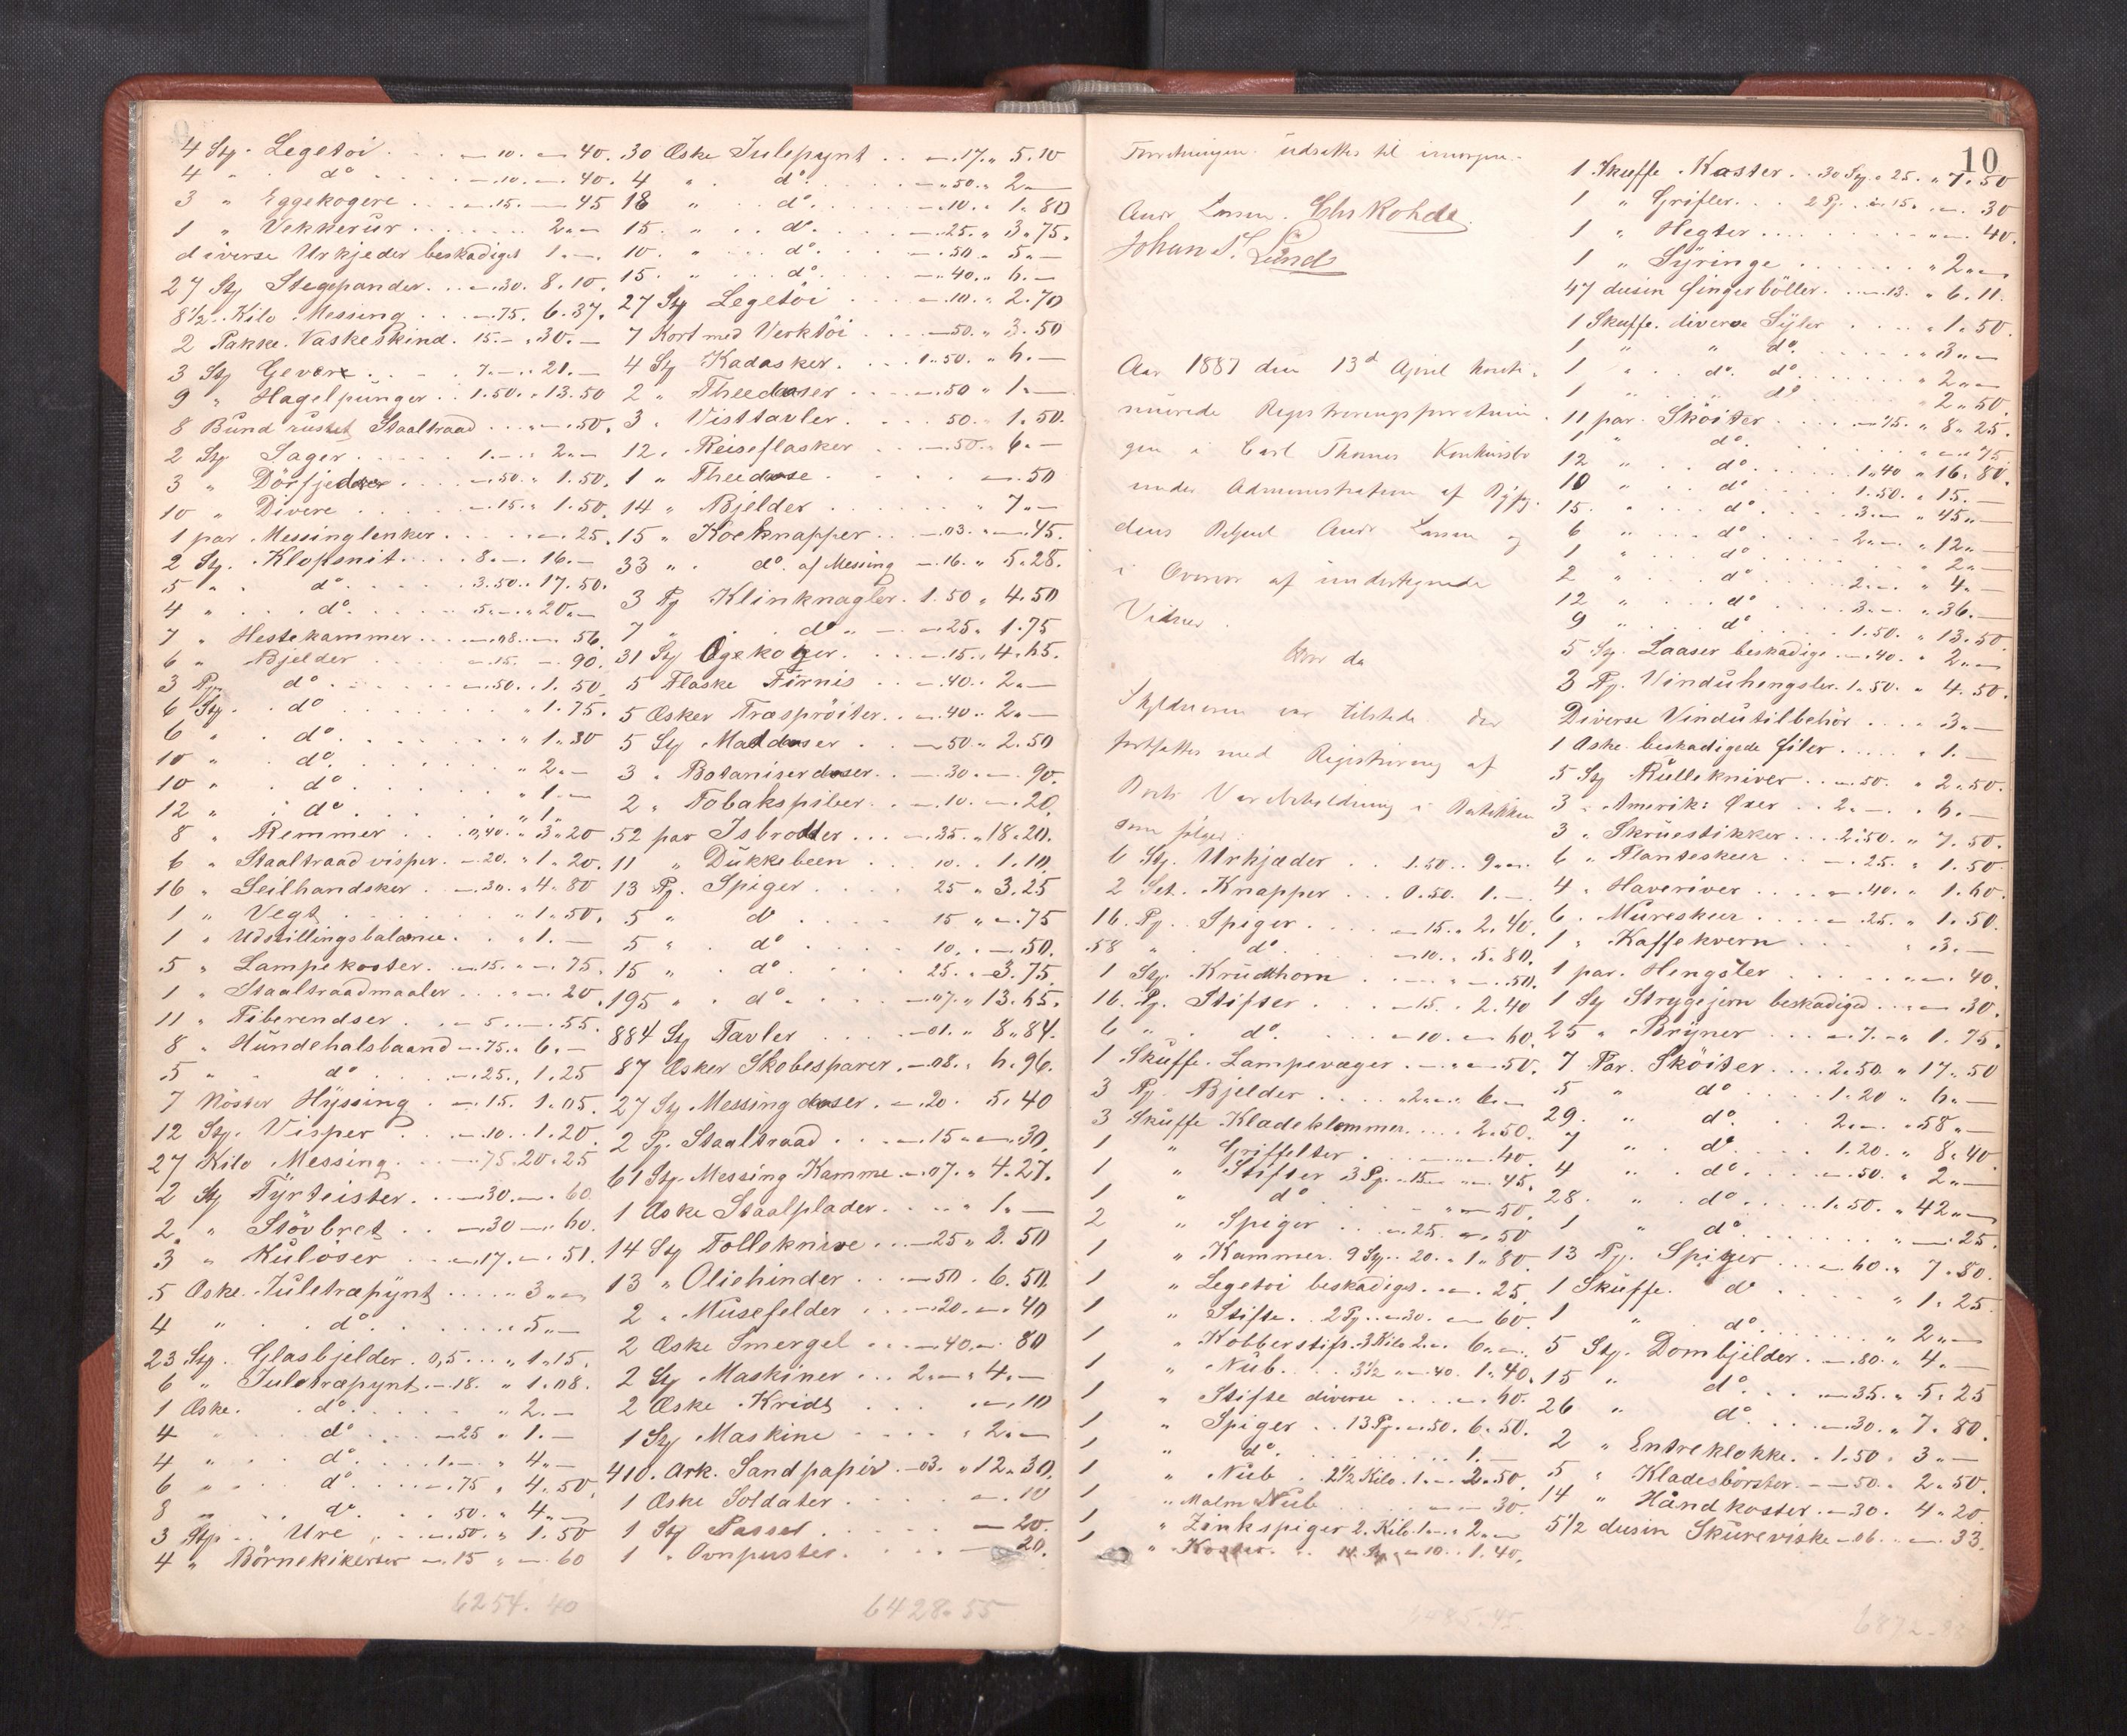 4 Stj. Legetøi . . . „ – 10. „ – 40.
4 „ dº . . . . „ – 10. „ – 40.
3 „ Eggekogere . . „ – 15. – 45
1 „ Vekkerur . . . . 2 „ –
diverse Urkjeder beskadiget 1. –
27 Stj Stegepander . . – 30. 8.10.
8 1/2 Kilo Messing . . . – 75. 6.37.
2 Pakke Vaskeskind. 15. – „ 30. –
3 Stj Gevær . . . 7. – „ 21. –
9 „ Hagelpunger . . 1.50. „ 13.50
8 Bund rustet Staaltraad . . . „ – 50.
2 Stj Sager . . . . 1. – „ 2 „ –
3 „ Dörfjedrer . . . – 50. „ 1.50.
10 „ Divere . . . . – 15. „ 1.50.
1 par Messinglenker . . . . – 25.
2 Stj. Klopsnit . . . 8 „ – 16. –
5 „ dº . . . . 3.50. „ 17.50.
4 „ dº . . . . 5. – „ 20 „ –
7 „ Hestekammer . . . – 08. – 56.
6 „ Bjelder . . . . – 15. – 90.
3 Pj dº . . . . – 50. „ 1.50.
6 Stj. dº . . . . „ 1.75.
6 „ dº . . . . „ 1.30
10 „ dº . . . . „ 2 „ –
10 „ dº . . . . „ 1. –
12 „ dº . . . . „ 1.
8 „ Remmer . . . 0,40. „ 3.20
6 „ Staaltraadvisper. – 20. „ 1.20.
16 „ Seilhandsker . – 30. „ 4.80
1 „ Vegt . . . . „ 1.50.
1 „ Udstillingsbalance . . „ 1. –
5 „ Lampekoster. – 15. „ – 75.
1 „ Staaltraadmaaler . . . „ – 20.
11 „ Piberendser . . – 5. – 55.
8 „ Hundehalsbaand – 75. „ 6. –
5 „ dº . . – 25. „ 1.25
7 Nöster Hyssing . – 15. 1.05.
12 Stj. Visper . . – 10. „ 1.20.
27 Kilo Messing . . – 75. 20.25
2 Stj Tyrteister . . – 30. – 60.
2 „ Stövbret . . – 30 – 60.
3 „ Kulöser . . . – 17. – 51.
5 Æske Juletræpynt . . . „ 3 „ –
4 „ dº . . . . . 5 „ –
23 Stj. Glasbjelder. 0,5 . . . „ 1.15.
6 „ Juletræpynt. – 18. „ 1.08.
1 Æske. dº . . . „ 2. –
4 „ dº . . . – 25 „ 1. –
4 „ dº . . . 1. – „ 4 „ –
6 „ dº . . . – 75 „ 4.50.
8 „ dº . . . 50. „ 4 „ –
3 Stj. Ure . . . – 50. „ 1.50
4 „ Börnekikerter – 15 „ – 60
6254.40
30 Æske Julepynt . . – 17. „ 5.10
4 „ dº . . . . – 50. „ 2 „ –
18 „ dº . . . . – 10. „ 1.80
15. „ dº . . . – 25. „ 3.75.
10. „ dº . . . – 50. „ 5 „ –
15. „ dº . . . – 40. „ 6. –
27 Stj Legetöi . . . – 10. „ 2.70
7 Kort med Verktöi . . – 50. „ 3.50
4 Stj Kadasker . . . 1.50. „ 6. –
2 „ Theedaser . . . – 50 „ 1. –
3 „ Visttavler . . . 50. „ 1.50.
12. „ Reiseflasker . . – 50. „ 6. –
1 „ Theedase . . . . – 50
14 „ Bjelder . . . . „ 7 „ –
15 „ Kocknapper . . – 03. – 45.
33 „ dº af Messing – 16. „ 5.28.
3 Pj Klinknagler. 1.50 „ 4.50
7 „ dº „ – 25. 1.75
31 Stj Ægekoger . . . – 15. „ 4.65.
5 Flaske Firnis . . – 40. „ 2 „ –
5 Æsker Træspröiter . . – 40. „ 2 „ –
5 Stj Maddaser . . – 50. „ 2.50
3 „ Botaniserdaser . . – 30. – 90.
2 „ Tobakspiber . . – 10. – 20.
52 par Isbrodder . . . – 35. „ 18.20.
11 „ Dukkebeen . . . 10. „ 1.10.
13 Pj. Spiger . . . . 25 „ 3.25
5 „ dº . . . . 15 „ – 75
5 „ dº . . . . 10. „ – 50.
15 „ dº . . . . 25. „ 3.75.
195 „ dº . . . – 07. „ 13.65.
884 Stj Tavler . . . – 01. „ 8.84.
87 Æsker Skobesparer. – 08. „ 6.96.
27 Stj Messingdaser . – 20. 5.40
2 Pj. Staaltraad . . . – 15 „ – 30.
61 Stj. Messing Kamme – 07. „ 4.27.
1 Æske Staalplader . . . „ 1. –
14 Stj Tolleknive . . – 25 „ 3.50
13 „ Oliehinder . . . – 50 . 6.50.
2 „ Musefelder . . . – 20. – 40
2 Æske Smergel . . . – 40. – 80
2 Stj Maskiner . . . 2 „ – „ 4. –
2 Æske Kridt . . . . – 10
1 Stj Maskine . . . . „ 2 „ –
410. Ark. Sandpapir. – 03. „ 12.30.
1 Æske Soldater . . . . – 10
1 Stj Passet . . . . – 20.
1 „ Ovnpuster . . . . – 20.
6428.55
Forretningen udsattes til imorgen.
Andr Larsen. Chr Rohde.
Johan S. Lund
Aar 1887 den 13d April konti-
nuerede Registreringsforretnin-
gen i Carl Thomes Konkursbo
under Administration af Byfog-
dens Betjent Andr Larsen og
i Overvær af undertegnede
Vidner.
Hvor da
Skyldneren var tilstede. Der
fortsattes med Registrering af
Boets Varebeholdning i Butikken
som følger:
6 Stj. Urkjæder . . 1.50 . . 9 „ –
2 Set. Knapper . . 0.50. 1. –
16. Pj. Spiger . . . – 15. „ 2.40.
58 „ dº . . . – 10. „ 5.80.
1 Stj. Krudthorn . . . . – 50.
16. Pj. Stifter . . . – 15. „ 2.40
6 „ dº . . . – 10. – 60.
1 Skuffe. Lampevæger . . . – 50.
3 Pj. Bjelder . . . . 2 „ – „ 6. –
3 Skuffe Klædeklemmer . . . 2.50.
1 „ Griffelter . . . . – 40.
1 „ Stifter 3 Pj. „ 15 „ – 45.
1 „ dº . . . . – 50.
2 „ Spiger . . – 25. „ – 50
1 „ Kammer. 9 Stj. . 20. „ 1.80.
1 „ Legetoi beskadiget. . – 25.
1 „ Stifte. . 2 Pj. – 30. – 60.
1 „ Kobberstift. 3 Kilo 2 „ – 6 „ –
1 „ Nub . . . 3 1/2 „ – 40. 1.40.
1 „ Stifte diverse . . . . – 40.
1 „ Spiger . . 13 Pj. – 50. 6.50.
1 „ dº . . . . . 1. –
1 „ Nub . 2 1/2 Kilo. 1. – 2.50.
1 „ Malm Nub . . . . – 30.
1 „ Zinkspiger 2. Kilo. 1. – „ 2 „ –
1 „ Koster. . . 14 Stj. – 10. . 1.40.
6485.45
10
1 Skuffe Kaster . . 30 Stj. „ 25. „ 7.50
1 „ Grifler . . . 2 Pj. . „ 15. „ – 30
1 „ Hegter . . . . . – 40.
1 „ Syringe . . . . . „ 2 „ –
47 dusin fingerböller. . – 13. „ 6.11.
1 Skuffe. diverse Syler . . . . „ 1.50.
1 „ „ dº . . . . „ 3 „ –
1 „ dº. dº . . . . „ 2 „ –
1 „ „ dº . . . . „ 2.50.
11 par. Sköiter . . . . – 75. „ 8.25.
1 „ dº . . . . „ – 75.
12 „ dº . . . . 1.40 „ 16.80.
10 „ dº . . . . 1.50. „ 15. –
15. „ dº . . . . 3. – „ 45 „ –
6 „ dº . . . . 2 „ – „ 12 „ –
1 „ dº . . . . „ 2 „ –
2 „ dº . . . . 2. – „ 4. –
12 „ dº . . . . 3 „ – „ 36. –
9 „ dº . . . . 1.50. „ 13.50.
5 Stj. Laaser beskadige. – 40. „ 2 „ –
3 Pj. Vinduhengsler. 1.50. „ 4.50.
Diverse Vindutilbehör . . . . 3 „ –
1 Æske beskadigede filer . . . . „ 1. –
5 Stj Rullekniver . . – 50. „ 2.50.
3 „ Amerik: Øxer . . 2 „ – . 6. –
3 „ Skruestikker . . . 2.50. „ 7.50.
6 „ Planteskeer . . – 25. „ 1.50.
4 „ Haveriver . . . . – 40. „ 1.60.
6. „ Mureskeer . . . . – 25. „ 1.50.
1 „ Kaffekvern . . . „ 3. –
1 par. Hengsler . . . . . – 40.
1 Stj Strygejern beskadiged . . . – 30.
25 „ Bryner . . . – 7. – „ 1.75.
7 Par. Sköiter . . . . 2.50. „ 17.50
5 „ dº . . . . 1.20 „ 6 „ –
29. „ dº . . 2 „ – . „ 58 „ –
7 „ dº . . . 1.20. „ 8.40.
4 „ dº . . . – 50. „ 2 „ –
28. „ dº . . . . 1.50. „ 42 „ –
1 „ dº . . . . „ – 25.
13 Pj. Spiger . . . – 60. „ 7.80.
1 Skuffe. dº . . . . „ 1.25.
1 „ dº . . . . „ 2 „ –
5 Stj. Dombjelder . . – 80. „ 4. –
15 „ dº . . – 35. „ 5.25
26 „ dº . . – 30. „ 7.80.
2 „ Entreklokke . . 1.50. „ 3 „ –
5 „ Kladesbörster . – 50. „ 2.50.
14 „ Håndkoster . – 30. 4.20.
5 1/2 dusin Skureviske – 06. . – 33.